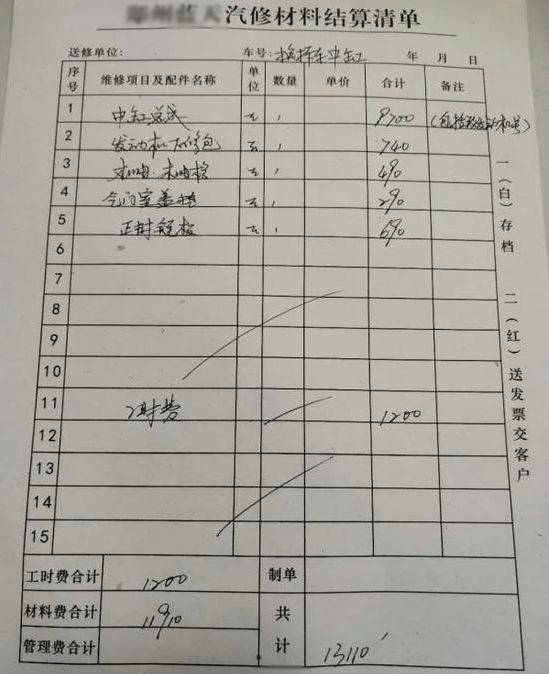 汽修材料结算清单
送修单位: 车号: 换挥车中缸 年 月 日
序号 维修项目及配件名称 单位 数量 单价 合计 备注
1 中缸总成 9700
2 发动机大修包 740
3 机油.机油格 490
4 气门室盖垫 290
5 正时 690
6
7
8
9
10
11 工时费 1200
12
13
14
15
工时费合计 1200 制单
材料费合计 11910 共计 13110
管理费合计
一(白)存档 二(红)送发票交客户